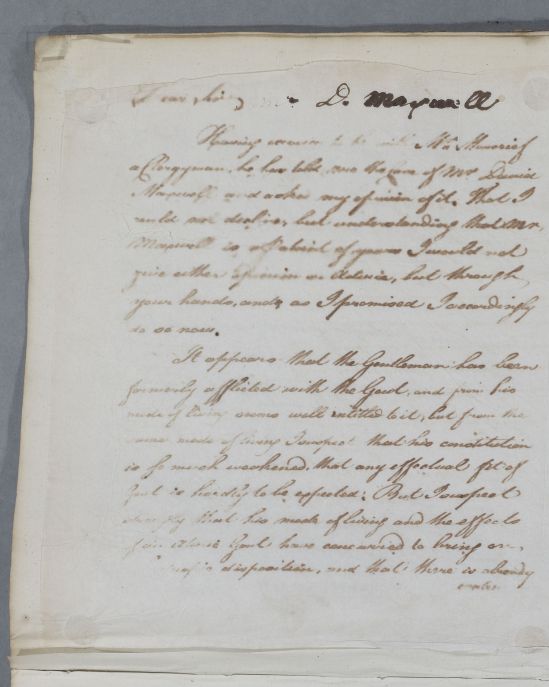 Dear Sir, D. Maxwell
Having occasion to be with Mr. Moncrief
a Clergyman, he has told me the case of Mr. David
Maxwell and asked my opinion of it. That I
could not decline, but understanding that Mr.
Maxwell is a Patient of yours I would not
give either opinion or Advice, but through
your hands, and as I promised I accordingly
do so now.
It appears that the Gentleman has been
formerly afflicted with the Gout, and from his
mode of living seems well entitled to it, but from the
same mode of living I suspect that his constitution
is so much weakened, that any effectual fit of
Gout is hardly to be expected: But I suspect
that his mode of living and the effects
of an Atonic Gout have concurred to bring on
disposition, and that there is already
water